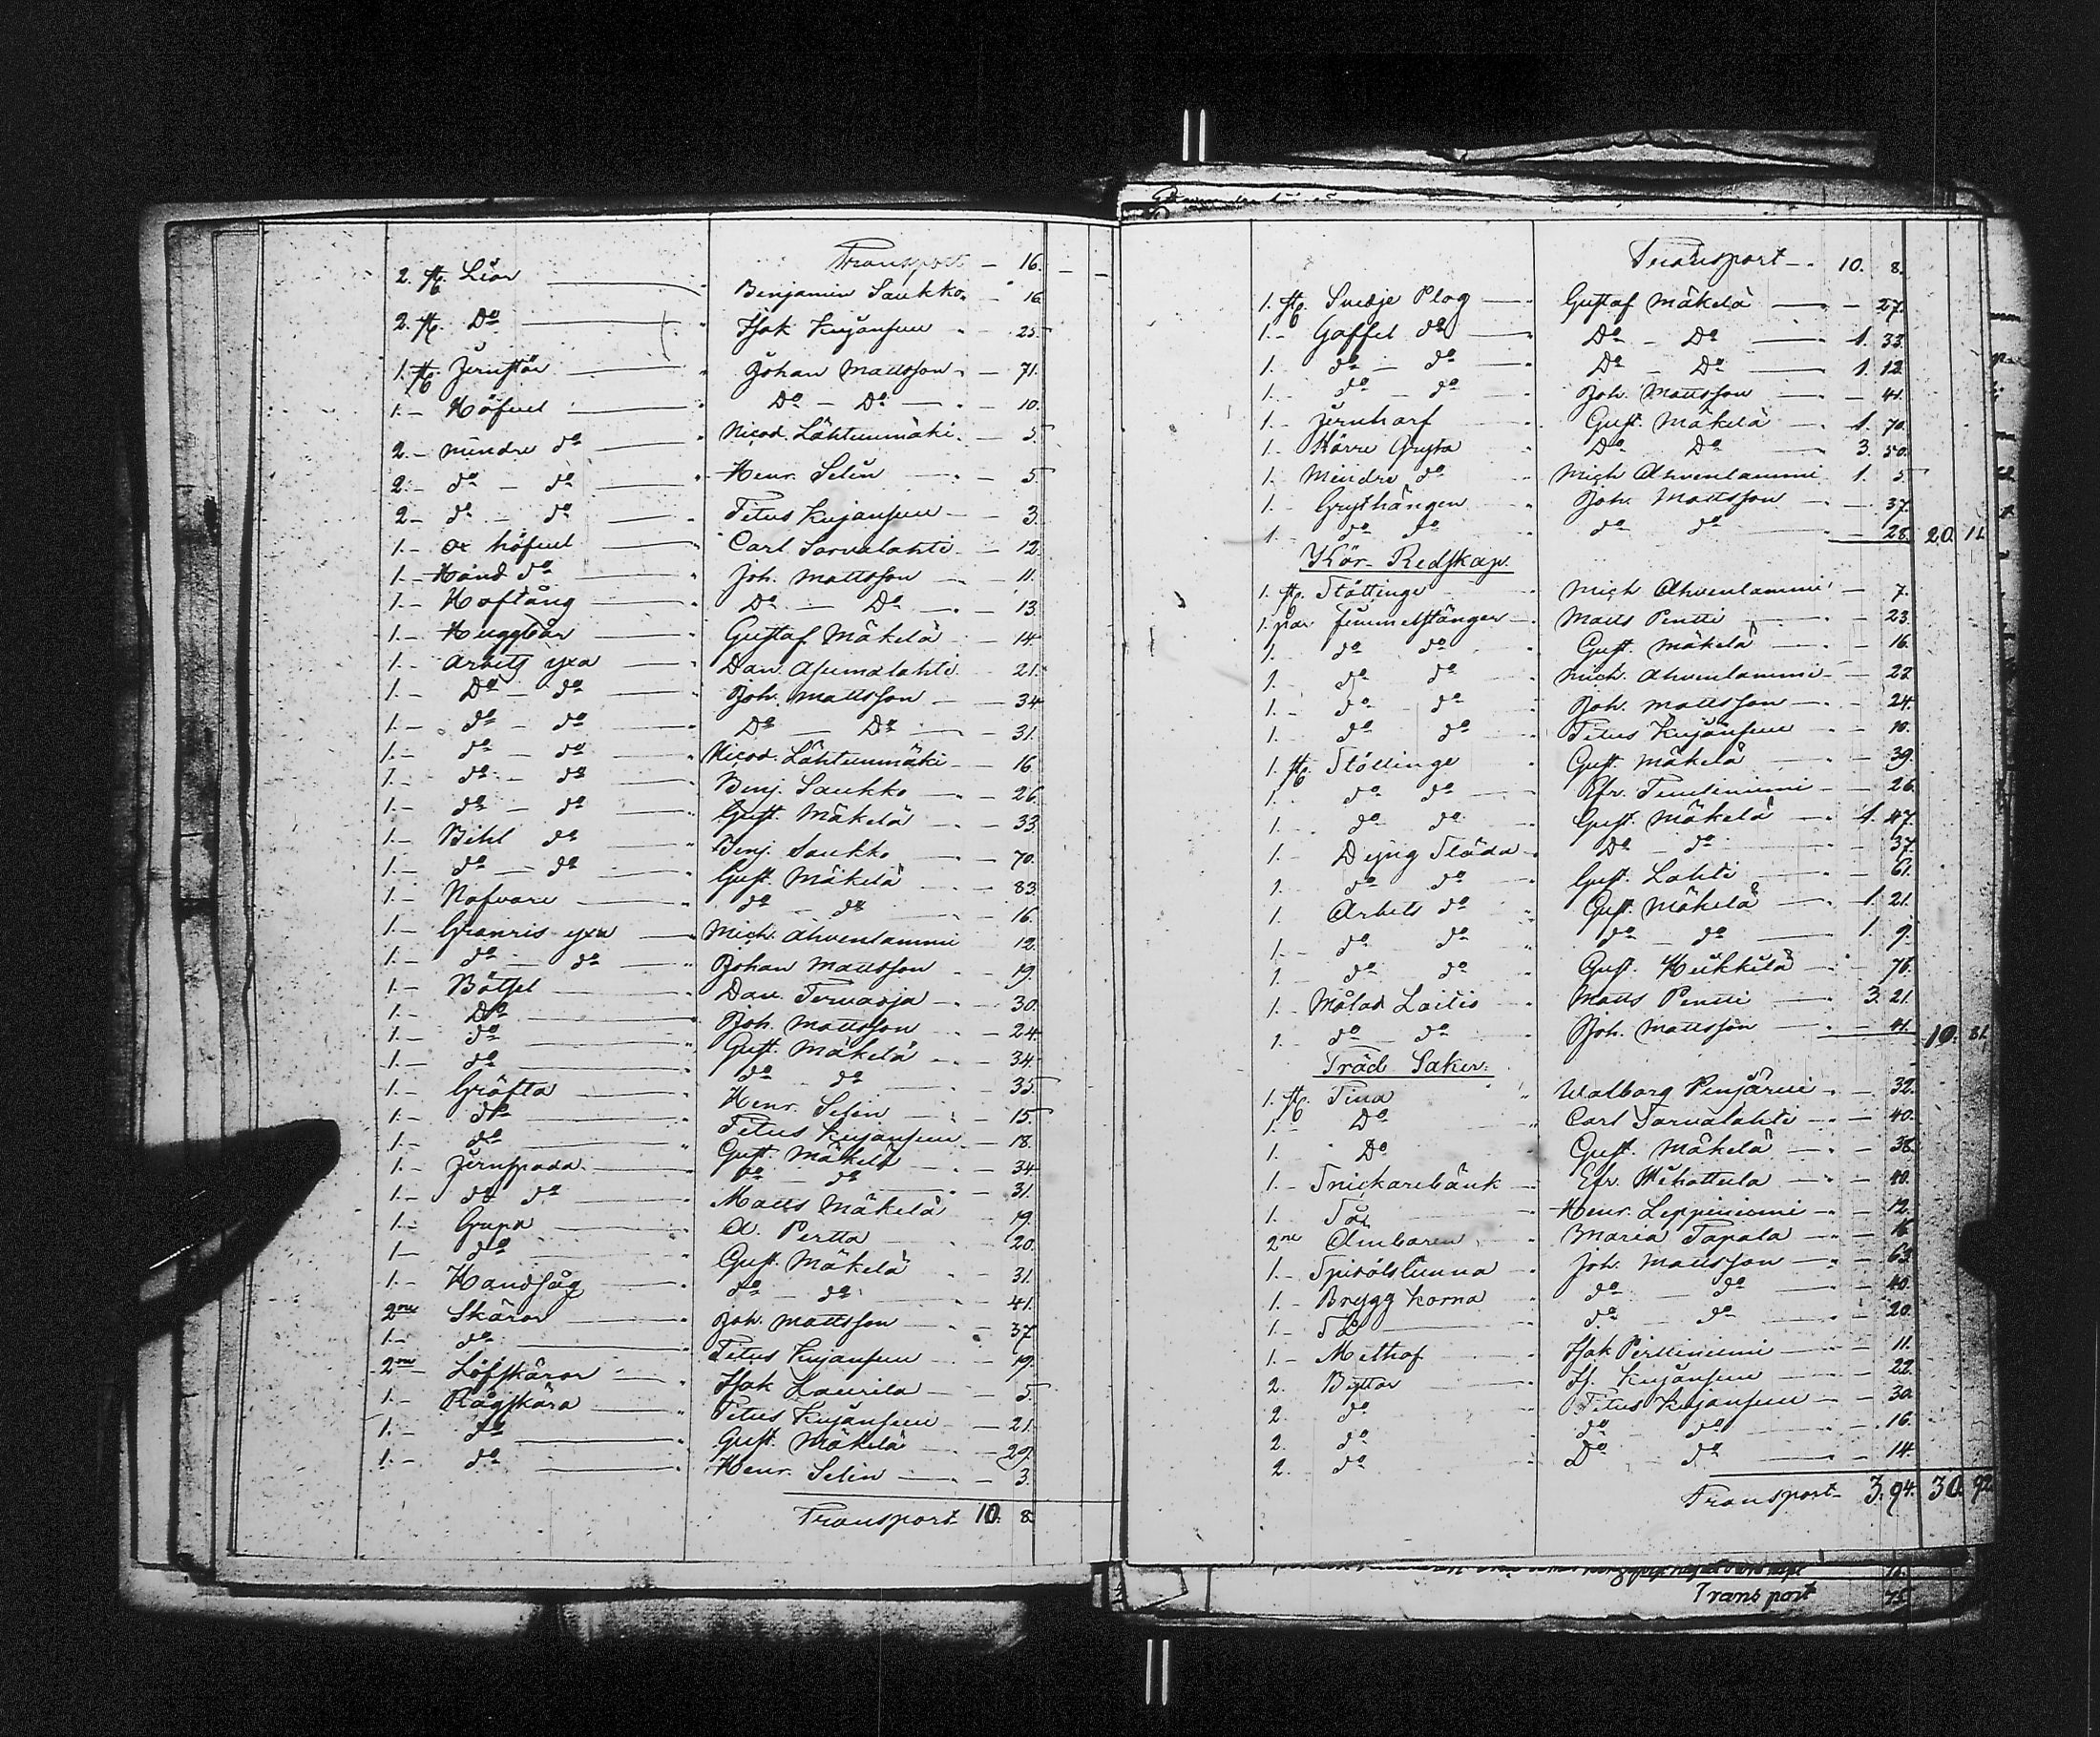 Transport - 16.
2. st. Liar Benjamin Saukko - 16
2. st. Do Isak Kujansuu - 25
1. st. Jernstör Johan Mattsson - 71.
1.- Höfvel Do - Do - 10.
2.- mindre do Nicod. Lähteenmäki - 5
2.- do - do Henr. Selin - 5
2.- do - do Titus Kujansuu - 3
1.- ox höfvel Carl Sarvalahti - 12
1.- Hand do Joh. Mattsson - 11.
1.- Hoftång Do - Do - 13
1.- Huggbår Gustaf Mäkelä - 14
1.- Arbets yxa Dan. Asumalahti 21.
1.- Do - do Joh. Mattsson - 34
1.- do - do Do - Do - 31.
1.- do - do Nicod. Lähteenmäki - 16
1.- do - do Benj. Saukko - 26.
1.- do - do Gust. Mäkelä - 33
1.- Bihl do Benj. Saukko - 70.
1.- do - do Gust. Mäkelä - 83
1.- Nafvare do - do - 16.
1.- Granris yxa Mich. Ahvenlammi 12.
1.- do - do Johan Mattsson - 19.
1.- Bötsel Dan. Tervaoja - 30.
1.- Do Joh. Mattsson - 24
1.- do Gust. Mäkelä - 34
1.- do do - do - 35
1.- Gräfta Henr. Selin - 15
1.- do Titus Kujansuu - 18.
1.- do Gust. Mäkelä - 34
1.- Jernspada Do - do - 31.
1.- do do Matts Mäkelä - 19.
1.- Grepa A. Pertta 20.
1.- do Gust. Mäkelä - 31.
1.- Handsåg do - do - 41.
2ne Skäror Joh. Mattsson - 37
1.- do Titus Kujansuu - 19.
2ne Löfskäror Isak Laurila - 5
1.- Rågskära Titus Kujansuu - 21.
1.- do Gust. Mäkelä - 29.
1.- do Henr. Selin - 3.
Transport 10. 8.
Transport - 10. 8.
1. st. Svedje Plog Gustaf Mäkelä - 27.
1.- Gaffel do Do - Do 1. 33.
1. do - do Do - Do 1. 12
1.- do - do Joh. Mattsson - 41.
1. Jernharf Gust. Mäkelä 1. 70.
1.- Större Gryta Do Do 3. 50.
1. Mindre do Mich Ahvenlammi 1. 5
1.- Grythängen Joh. Mattsson - 37.
1. do do do do - 28. 20. 11.
Kör-Redskap.
1. st. Stöttinge Mich Ahvenlammi - 7.
1. par Fimmelstänger Matts Pentti - 23.
1. do do Gust. Mäkelä - 16.
1. do do Mich. Ahvenlammi - 22
1.- do - do Joh. Mattsson - 24.
1. do do Titus Kujansuu - 10.
1. st. Stöttinge Gust. Mäkelä - 39.
1. do do Efr. - 26.
1.- do do Gust. Mäkelä 1. 47.
1.- Dyng Släda Do - do - 37.
1. do do Gust. Lahti - 61.
1. Arbets do Gust. Mäkelä 1. 21.
1.- do do do - do 1. 9.
1. do do Gust. Heikkilä - 76.
1. Målad Laitio Matts Pentti 3. 21.
1. do - do Joh. Mattsson - 41. 10. 81.
Träd Saker.
1. st. Tina Walborg Penjärvi - 32.
1.- Do Carl Sarvalahti - 40.
1. Do Gust. Mäkelä - 38.
1.- Snickarebänk Efr. - 40.
1. Så Henr. Leppiniemi - 12.
2ne Ämbaren Maria Tapala - 16
1.- Spisölstunna Joh. Mattsson - 63
1.- Brygg korna do - do - 40.
1.- Så do - do - 20.
1.- Melthof Isak - 11.
2. Byttor Is. Kujansuu - 22.
2. do Titus Kujansuu - 30.
2. do do - do - 16.
2. do Do - do - 14.
Transport 3. 94. 30. 92
Transport 75